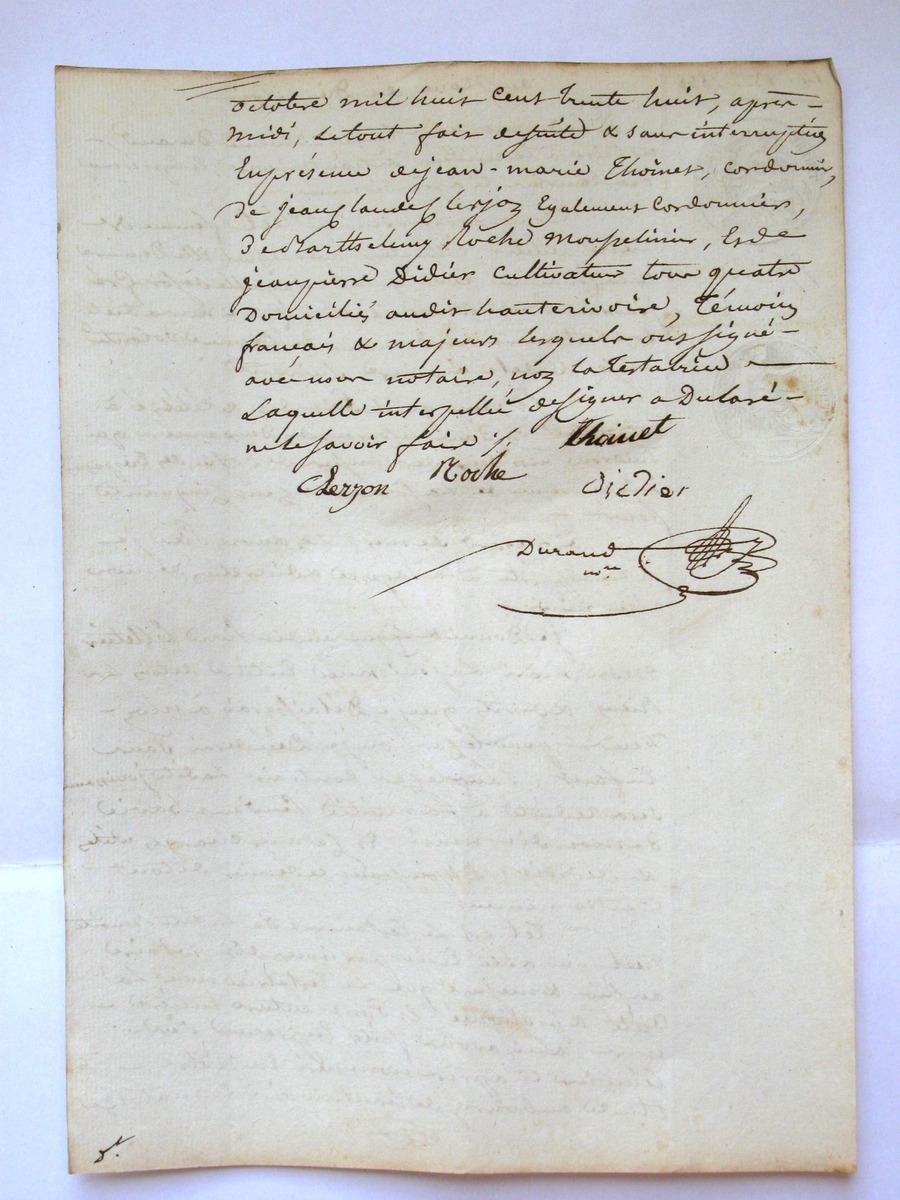 octobre mil huit cent trente huit, après-
midi, le tout fait de suite & sans interruption
En présence de jean-marie Thoinet, cordonnier,
De jean Claude Clerjon Egalement Cordonnier,
De Barthelemy Roche mouselinier, Et de
jean pierre Didier cultivateur tous quatre
Domiciliés audit hauterivoire, Témoins
francais & majeurs lesquels ont signé-
avec nous notaire, non la Testatrice
Laquelle interpellée de signer a Declaré-
ne le savoir faire ./.
Thoinet
Clerjon Roche Didier
Durand
nore